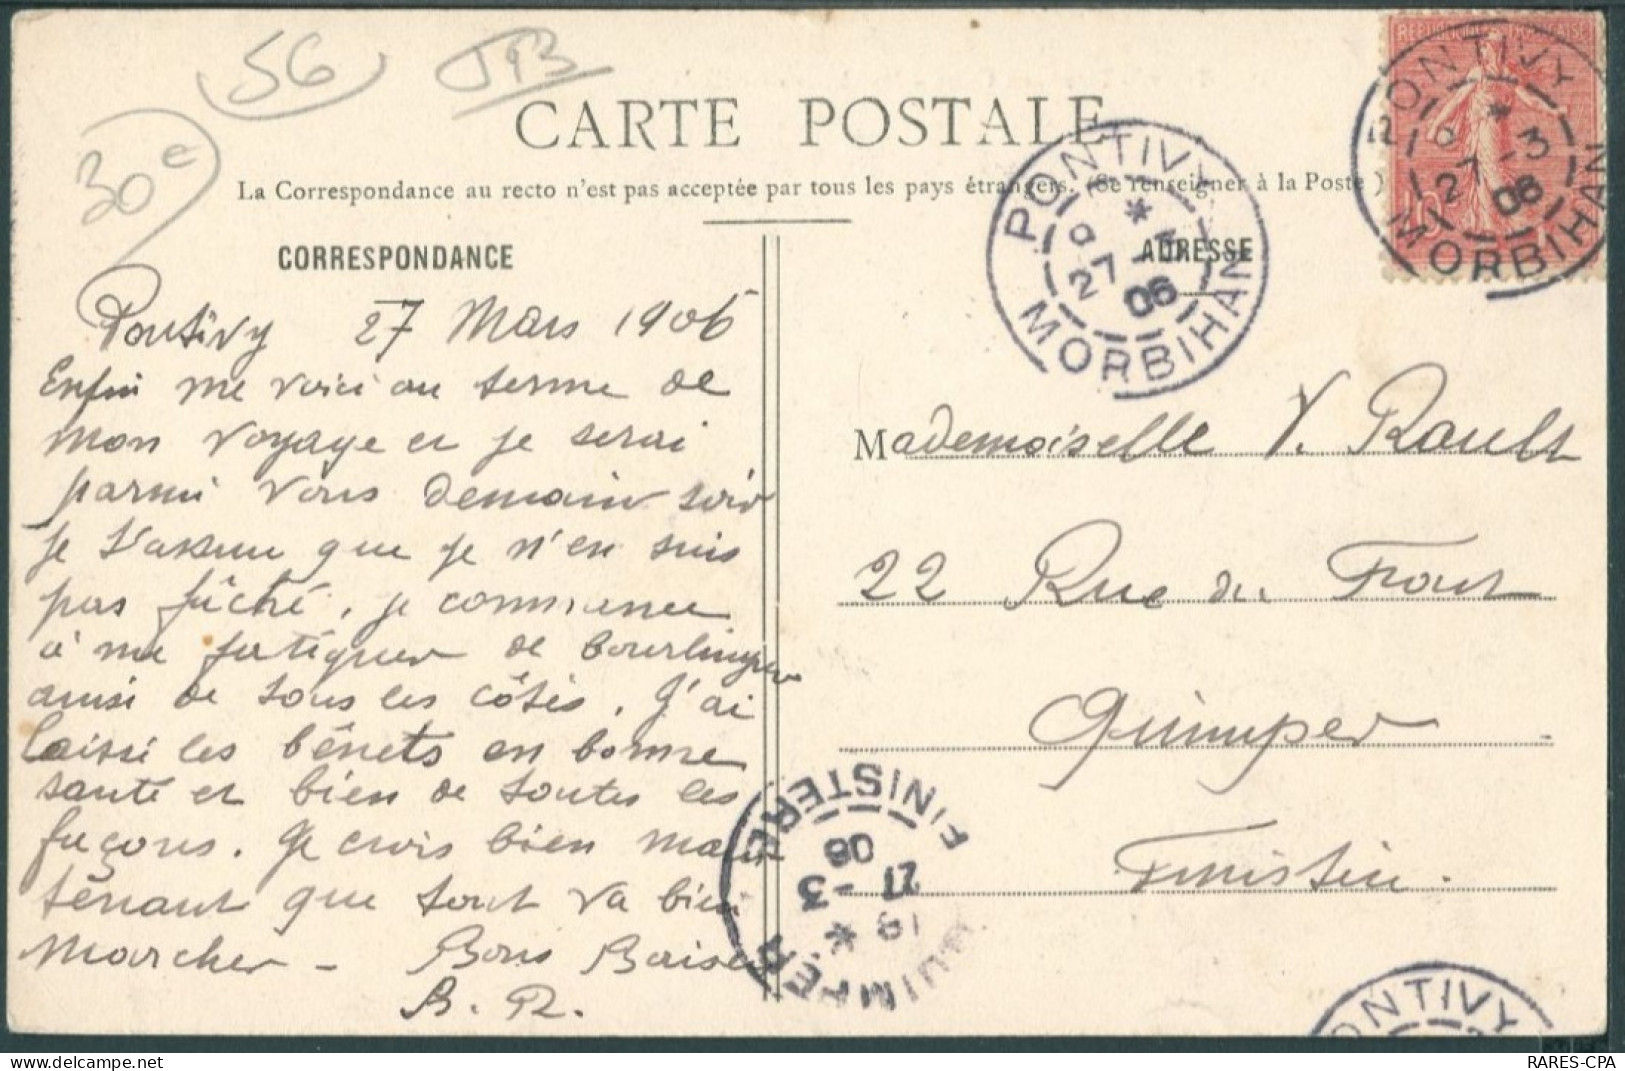 56 J93
30e
CARTE POSTALE
La Correspondance au recto n'est pas acceptée par tous les pays étrangers. (Se renseigner à la Poste)
CORRESPONDANCE
Pontivy 27 Mars 1906
Enfin me voici au terme de
mon voyage et je serai
parmi vous demain soir
Je t'assure que je n'en suis
pas fâché, je commence
à me fatiguer de bourlinguer
ainsi de tous les côtés. J'ai
laissé les bénets en bonne
santé et bien de toutes les
façons. Je crois bien main
tenant que tout va bien
marcher - Bons Baisers
B. R.
ADRESSE
Mademoiselle Y. Rault
22 Rue du Frout
Quimper
Finistère.
RÉPUBLIQUE FRANÇAISE
10
PONTIVY
* 27 -3 06
MORBIHAN
PONTIVY
* 27 -3 06
MORBIHAN
QUIMPER
* 27 -3 06
FINISTERE
PONTIVY
RARES-CPA